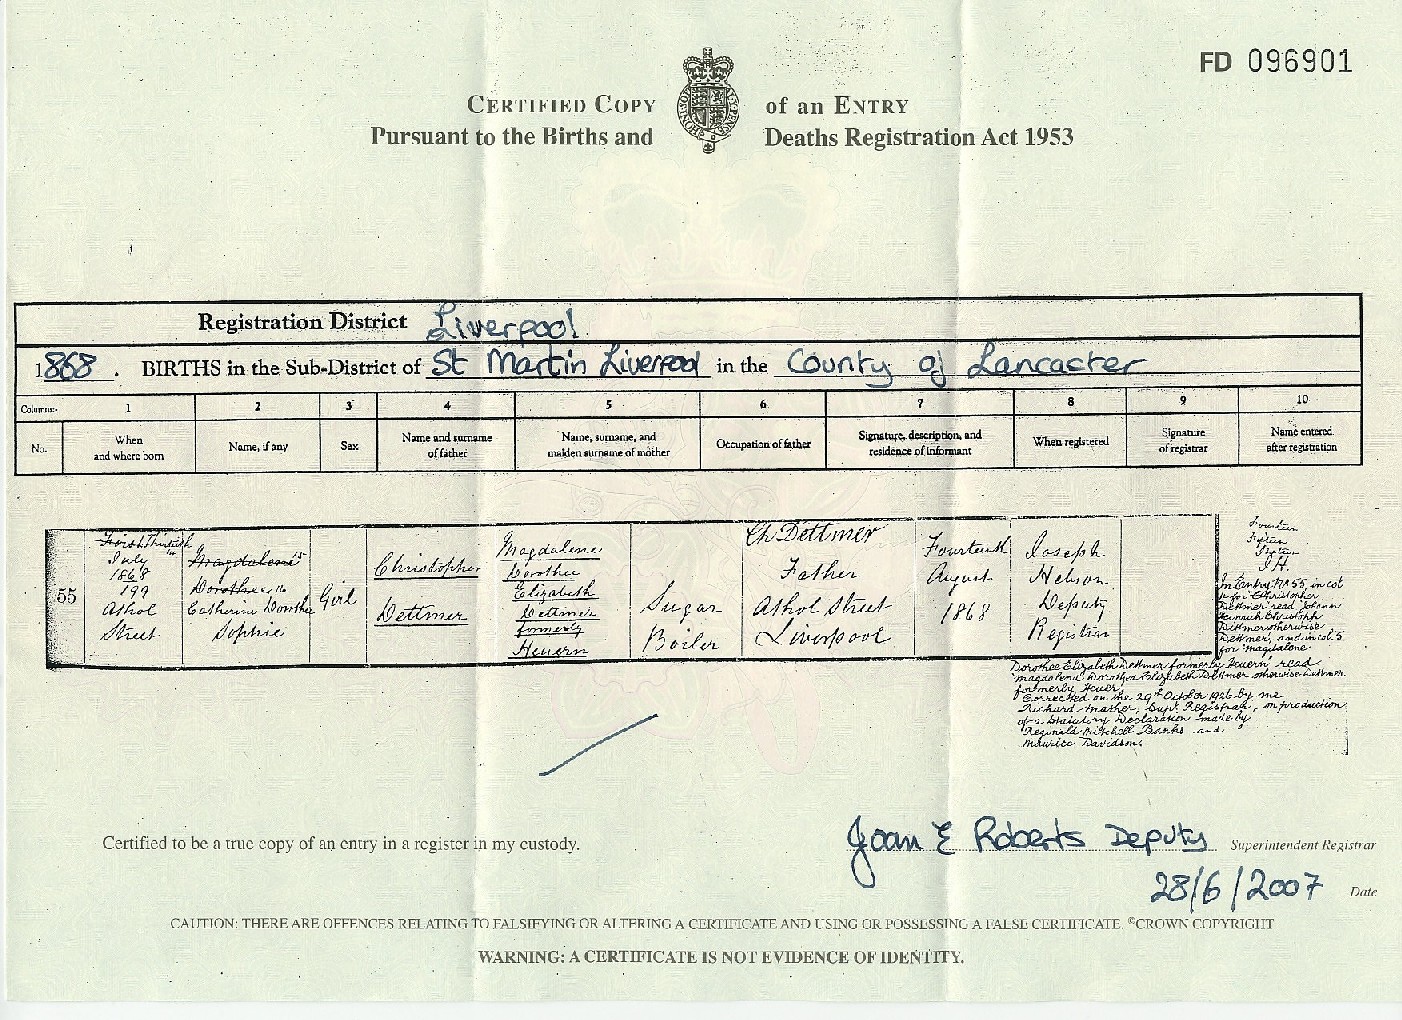 FD 096901
CERTIFIED COPY of an ENTRY
Pursuant to the Births and Deaths Registration Act 1953
Registration District Liverpool
1868. BIRTHS in the Sub-District of St Martin Liverpool in the County of Lancaster
Columns:- 1 2 3 4 5 6 7 8 9 10
No.
When
and where born
Name, if any
Sex
Name and surname
of father
Name, surname, and
maiden surname of mother
Occupation of father
Signature, description, and
residence of informant
When registered
Signature
of registrar
Name entered
after registration
55
July
1868
199
Athol
Street
Magdalene
Dorothea
Catherina Dorothea
Sophie
Girl
Christopher
Dettmer
Magdalene
Dorothee
Elizabeth
Dettmer
formerly
Heuern
Sugar
Boiler
Ch Dettmer
Father
Athol Street
Liverpool
Fourteenth
August
1868
Joseph
Nelson
Deputy
Registrar
Fourteen
Fifteen
Sixteen
J.H.
In Entry No 55, in col
4 for Christopher
Dettmer read Johann
Heinrich Christoph
Dittmer otherwise
Dettmer, and in col. 5
for Magdalene
Dorothee Elizabeth Dettmer formerly Heuern, read
Magdalena Dorothea Elizabeth Dittmer otherwise Dettmer
formerly Heuer
Corrected on the 29th October 1926 by me
Richard Mather, Supt. Registrar, on production
of a Statutory Declaration made by
Reginald Mitchell Banks and
Maurice Davidson.
Certified to be a true copy of an entry in a register in my custody.
Joan E Roberts Deputy Superintendent Registrar
28/6/2007 Date
CAUTION: THERE ARE OFFENCES RELATING TO FALSIFYING OR ALTERING A CERTIFICATE AND USING OR POSSESSING A FALSE CERTIFICATE. ©CROWN COPYRIGHT
WARNING: A CERTIFICATE IS NOT EVIDENCE OF IDENTITY.